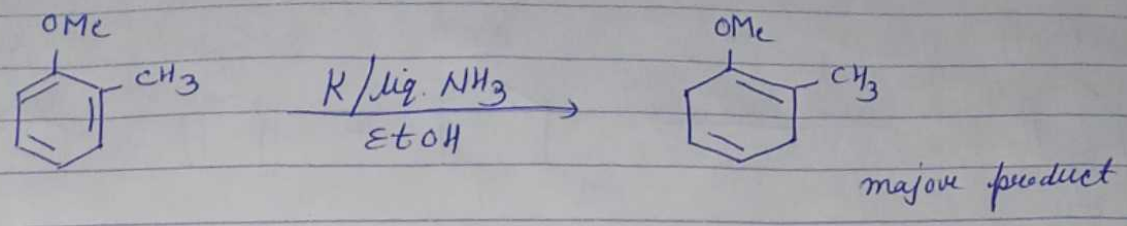 OMe
CH3
K/liq. NH3
EtOH
OMe
CH3
majour product